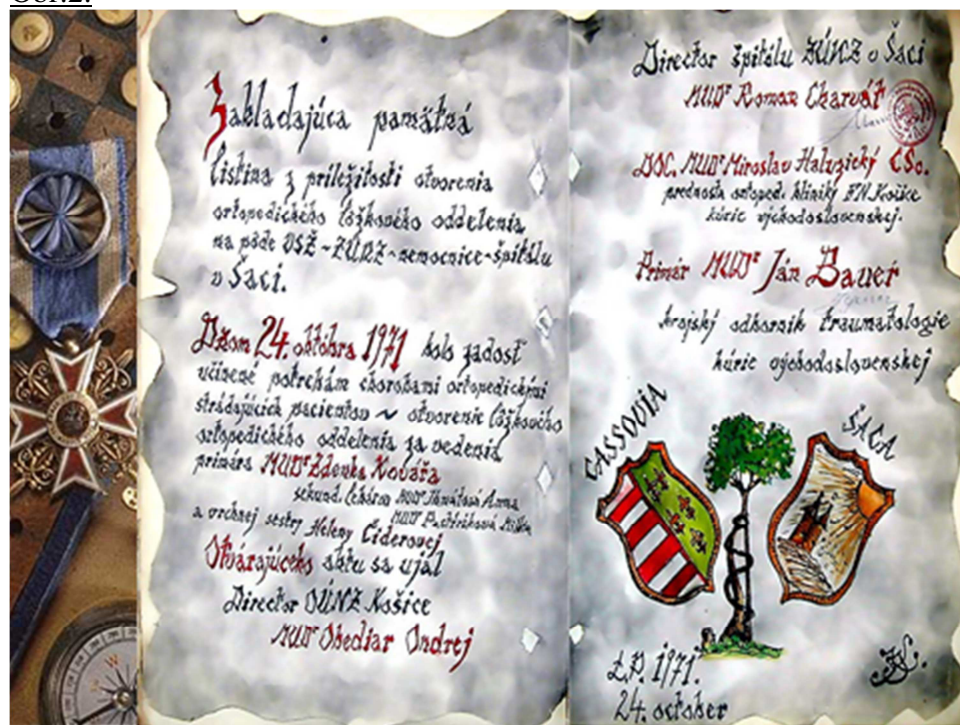 Obr.2.
Zakladajúca pamätná
listina z príležitosti otvorenia
ortopedického lôžkového oddelenia
na pôde VSŽ~ZÚNZ~nemocnice~špitálu
v Šaci.
Dňom 24. októbra 1971 bolo zadosť
učinené potrebám chorobami ortopedickými
strádajúcich pacientov ~ otvorenie lôžkového
ortopedického oddelenia za vedenia
primára MUDr Zdenka Kovářa
sekund. lekárov MUDr Anna
MUDr
a vrchnej sestry Heleny Ciderovej
Otvárajúceho aktu sa ujal
Director OÚNZ Košice
MUDr Obediar Ondrej
Director špitálu ZÚNZ v Šaci
MUDr Roman Charvát
DOC. MUDr Miroslav Haluzický CSc.
prednosta ortoped. kliniky FN. Košice
kúrie východoslovenskej.
Primár MUDr Ján Bauer
krajský odborník traumatologie
kúrie východoslovenskej
CASSOVIA
ŠACA
L.P. 1971.
24. october